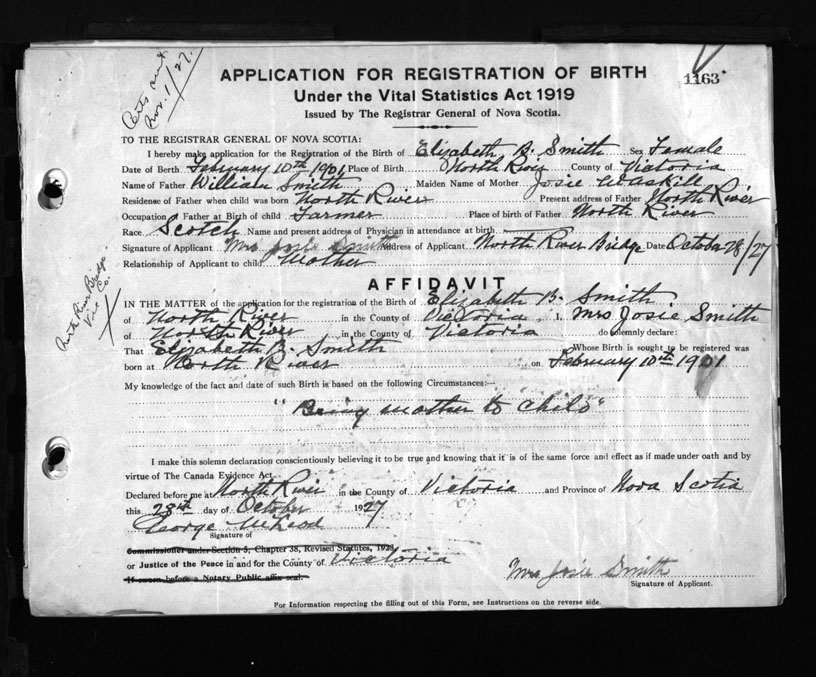 Certs sent
Nov. 1/27.
1163
APPLICATION FOR REGISTRATION OF BIRTH
Under the Vital Statistics Act 1919
Issued by The Registrar General of Nova Scotia.
TO THE REGISTRAR GENERAL OF NOVA SCOTIA:
I hereby make application for the Registration of the Birth of Elizabeth B. Smith Sex Female
Date of Berth February 10th 1901 Place of Birth North River County of Victoria
Name of Father William Smith Maiden Name of Mother Josie McAskill
Residense of Father when child was born North River Present address of Father North River
Occupation of Father at Birth of child Farmer Place of birth of Father North River
Race Scotch Name and present address of Physician in attendance at birth
Signature of Applicant Mrs Josie Smith Address of Applicant North River Bridge Date October 28/27
Relationship of Applicant to child Mother
North River Bridge
Vic Co.
AFFIDAVIT
IN THE MATTER of the application for the registration of the Birth of Elizabeth B. Smith
of North River in the County of Victoria. I, Mrs Josie Smith
of North River in the County of Victoria do solemnly declare:
That Elizabeth B. Smith Whose Birth is sought to be registered was
born at North River on February 10th 1901
My knowledge of the fact and date of such Birth is based on the following Circumstances:—
"Being mother to child"
I make this solemn declaration conscientiously believing it to be true and knowing that it is of the same force and effect as if made under oath and by
virtue of The Canada Evidence Act.
Declared before me at North River in the County of Victoria and Province of Nova Scotia
this 28th day of October 1927
George McLeod
Signature of
Commissioner under Section 5, Chapter 38, Revised Statutes, 1923
or Justice of the Peace in and for the County of Victoria
If sworn before a Notary Public affix seal.
Mrs Josie Smith
Signature of Applicant.
For Information respecting the filling out of this Form, see Instructions on the reverse side.